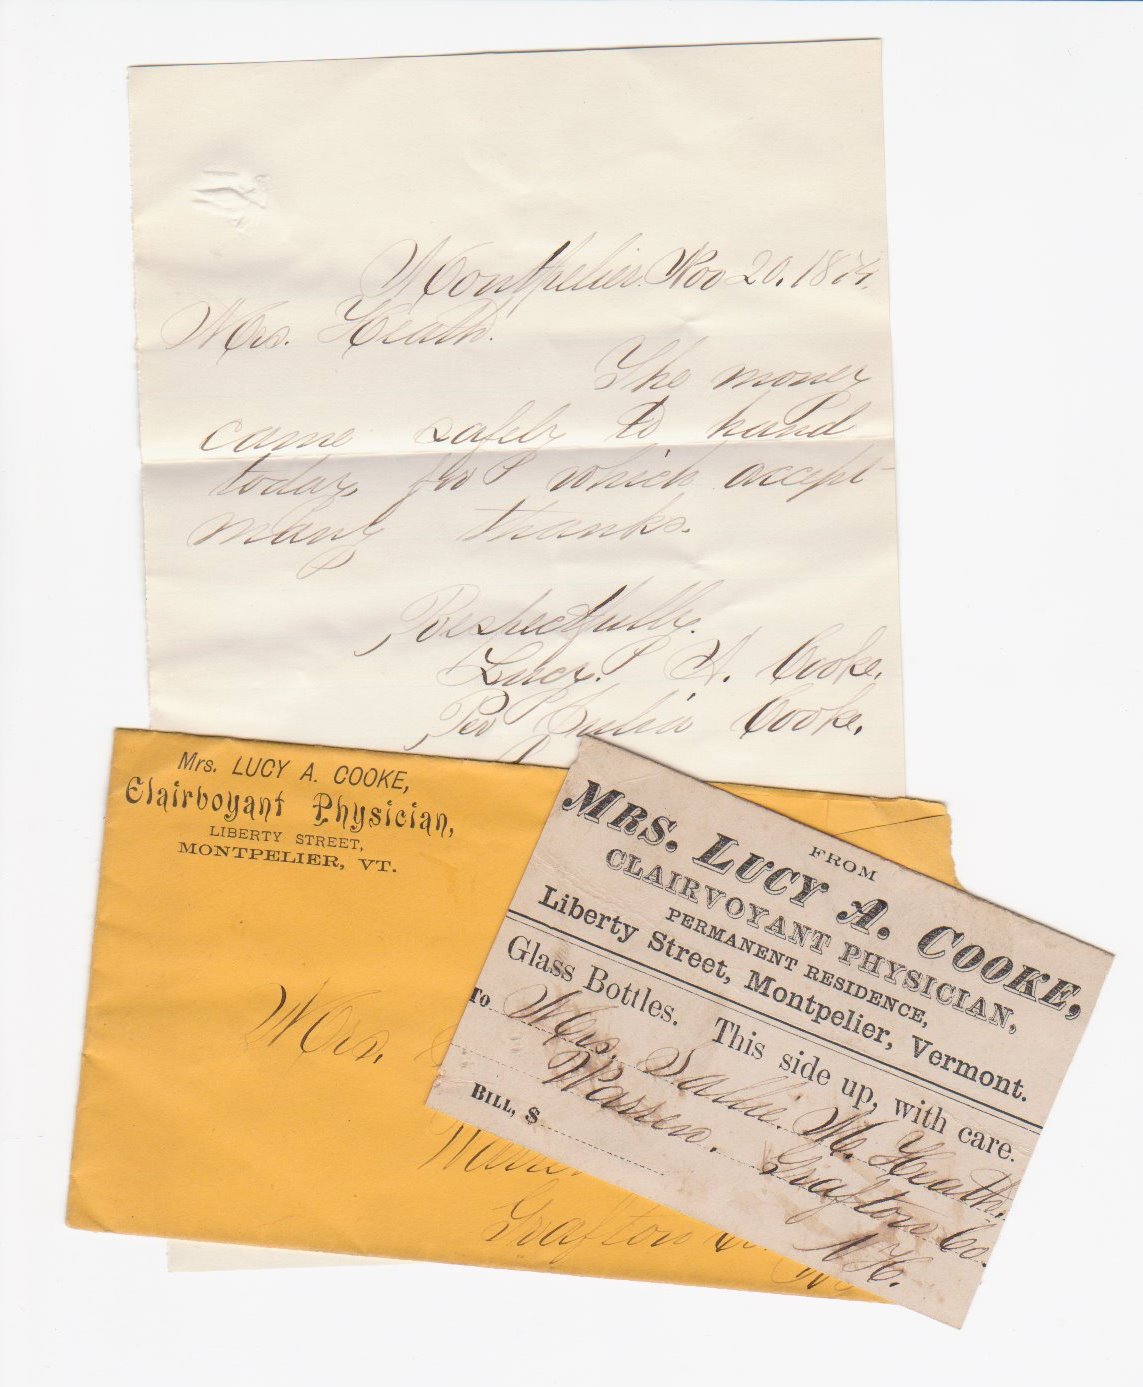 Montpelier. Nov 20. 1874.
Mrs. Heath.
The money
came safely to hand
today, for which accept
many thanks.
Respectfully.
Lucy. A. Cooke.
Per Julia Cooke.
Mrs. LUCY A. COOKE,
Clairvoyant Physician,
LIBERTY STREET,
MONTPELIER, VT.
Mrs.
Warren
Grafton Co.
FROM
MRS. LUCY A. COOKE,
CLAIRVOYANT PHYSICIAN,
PERMANENT RESIDENCE,
Liberty Street, Montpelier, Vermont.
Glass Bottles. This side up, with care.
To Mrs. Sallie. M. Heath.
Warren. Grafton Co.
N.H.
BILL, $